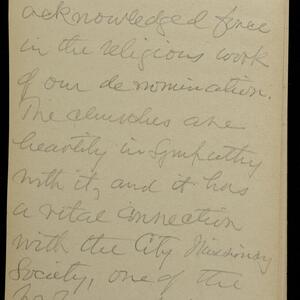 acknowledged force
in the religious work
of our denomination.
The churches are
heartily in sympathy
with it, and it has
a vital connection
with the City Missionary
Society, one of the